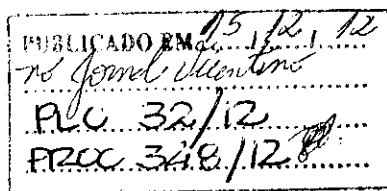 PUBLICADO EM 15, 12, 12
no Jornal Vicentino
PLC 32/12
PROC 348/12